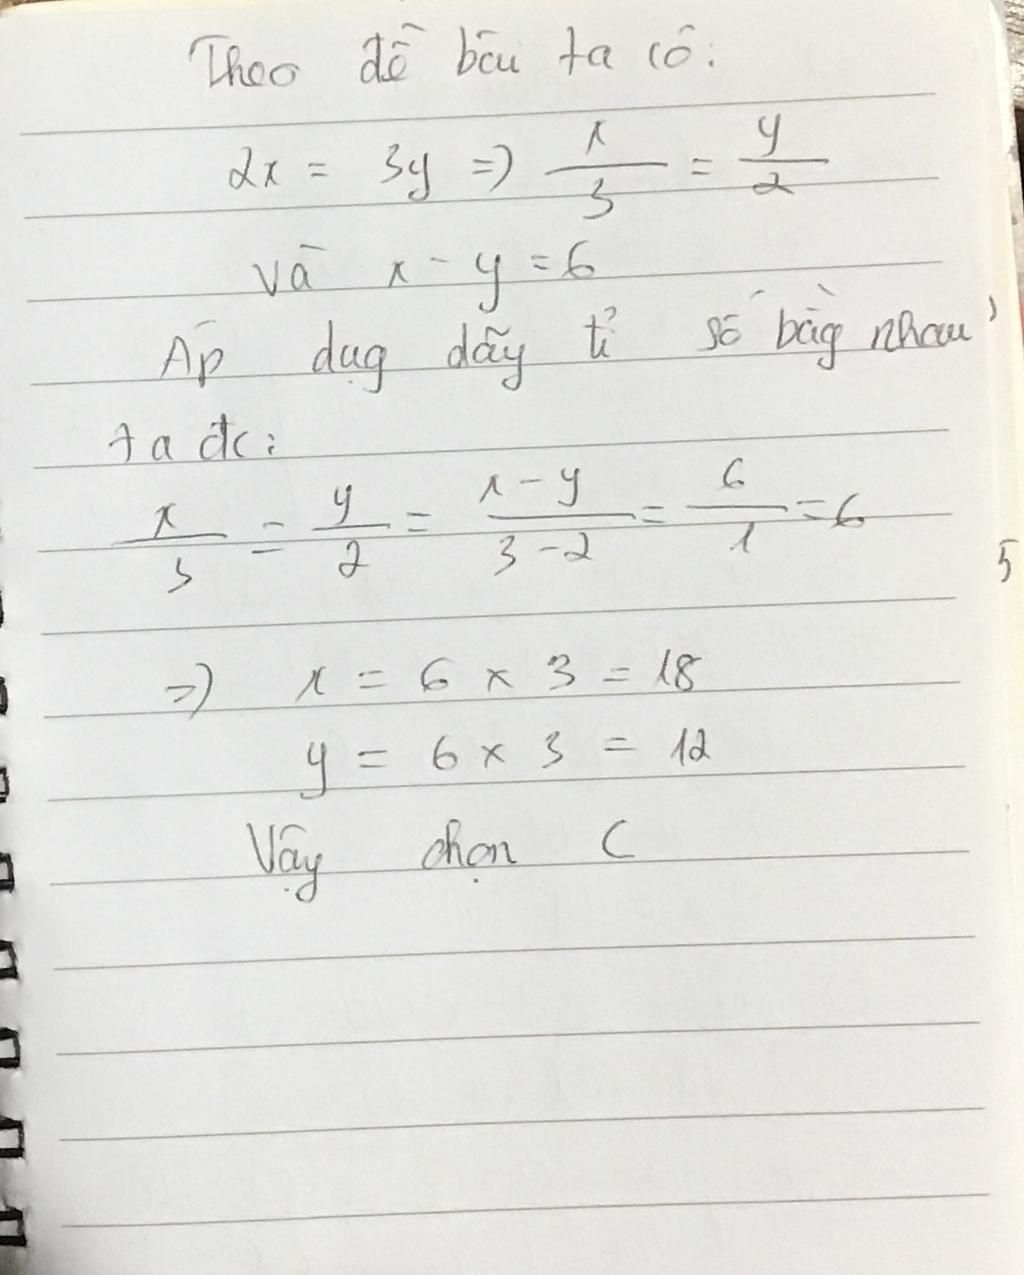 Theo đề bài ta có:
2x = 3y => x/3 = y/2
Và x - y = 6
Áp dụg dãy tỉ số bằg nhau,
ta đc:
x/3 = y/2 = x - y/3 - 2 = 6/1 = 6
=> x = 6 × 3 = 18
y = 6 × 3 = 12
Vậy chọn C
5